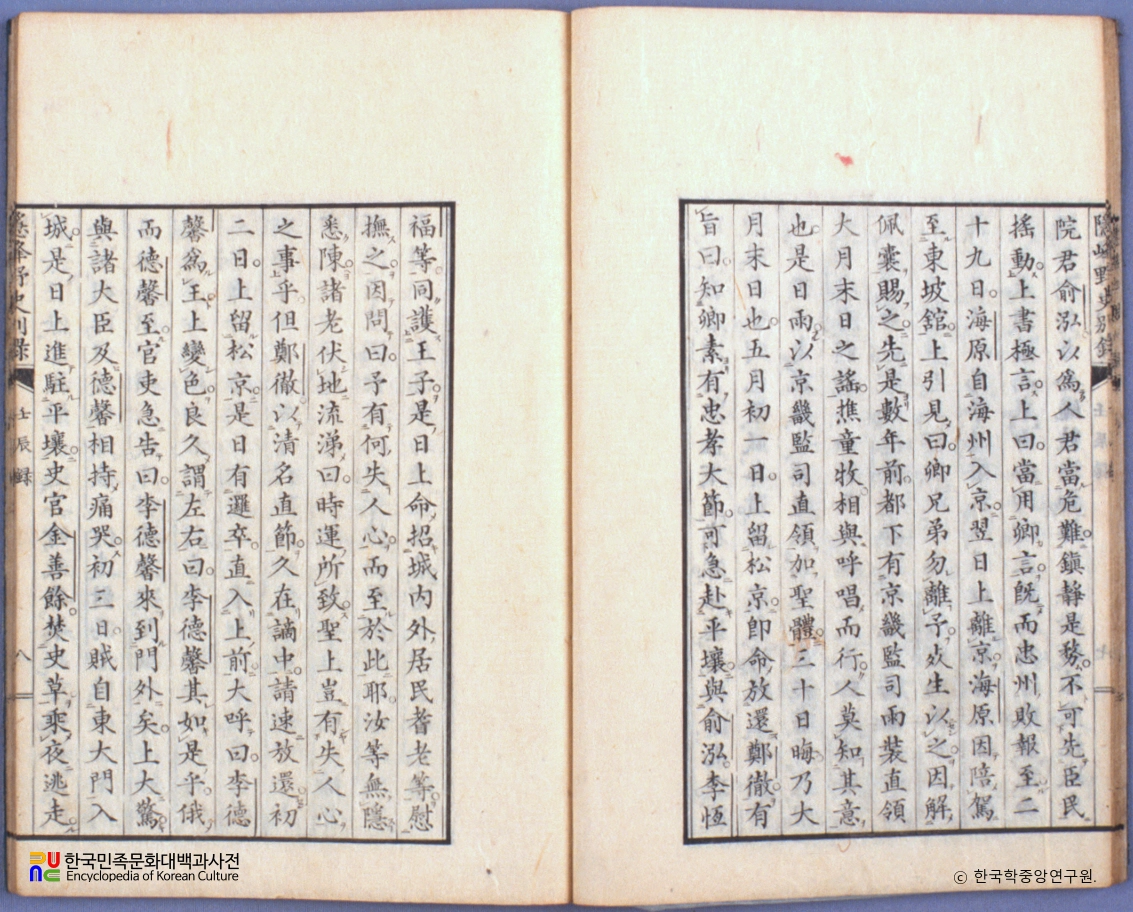 隱峰野史別錄
院君俞泓以爲人君當危難鎭靜是務不可先臣民
搖動上書極言上曰當用卿言旣而忠州敗報至二
十九日海原自海州入京翌日上離京海原因陪駕
至東坡舘上引見曰卿兄弟勿離予死生以之因解
佩囊賜之先是數年前都下有京畿監司雨裝直領
大月末日之謠樵童牧相與呼唱而行人莫知其意
也是日雨以京畿監司直領加聖體三十日晦乃大
月末日也五月初一日上留松京卽命放還鄭徹有
旨曰知卿素有忠孝大節可急赴平壤與俞泓李恆
福等同護王子是日上命招城內外居民耆老等慰
撫之因問曰予有何失人心而至於此耶汝等無隱
悉陳諸老伏地流涕曰時運所致聖上豈有失人心
之事乎但鄭徹以清名直節久在謫中請速放還初
二日上留松京是日有邏卒直入上前大呼曰李德
馨爲王上變色良久謂左右曰李德馨其如是乎俄
而德馨至官吏急告曰李德馨來到門外矣上大驚
與諸大臣及德馨相持痛哭初三日賊自東大門入
城是日上進駐平壤史官金善餘焚史草乘夜逃走
野史別錄 壬辰錄 八
한국민족문화대백과사전
Encyclopedia of Korean Culture
ⓒ 한국학중앙연구원.